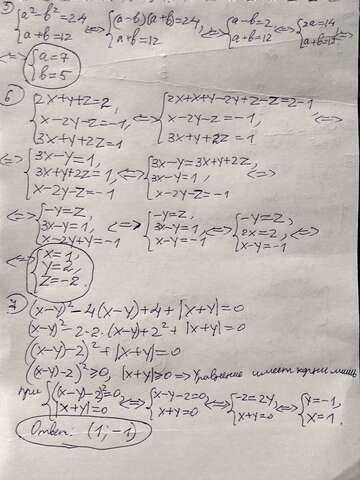 5) { a² - b² = 24 a + b = 12 <=> { (a-b)(a+b) = 24, a + b = 12 <=> { a - b = 2, a + b = 12 <=> { 2a = 14 a + b = 12
<=> { a = 7 b = 5
6 { 2x + y + z = 2, x - 2y - z = -1, 3x + y + 2z = 1 <=> { 2x + x + y - 2y + z - z = 2 - 1 x - 2y - z = -1, 3x + y + 2z = 1 <=>
<=> { 3x - y = 1, 3x + y + 2z = 1, x - 2y - z = -1 <=> { 3x - y = 3x + y + 2z, 3x - y = 1, x - 2y - z = -1 <=>
<=> { -y = z, 3x - y = 1, x - 2y + y = -1 <=> { -y = z, 3x - y = 1 x - y = -1 <=> { -y = z, 2x = 2, x - y = -1 <=>
<=> { x = 1, y = 2, z = -2.
7 (x-y)² - 4(x-y) + 4 + |x+y| = 0
(x-y)² - 2·2·(x-y) + 2² + |x+y| = 0
((x-y)-2)² + |x+y| = 0
((x-y)-2)² ≥ 0, |x+y| ≥ 0 => Уравнение имеет корни лишь
при { ((x-y)-2)² = 0, |x+y| = 0 <=> { x - y - 2 = 0, x + y = 0 <=> { -2 = 2y, x + y = 0 <=> { y = -1, x = 1.
Ответ: (1; -1)